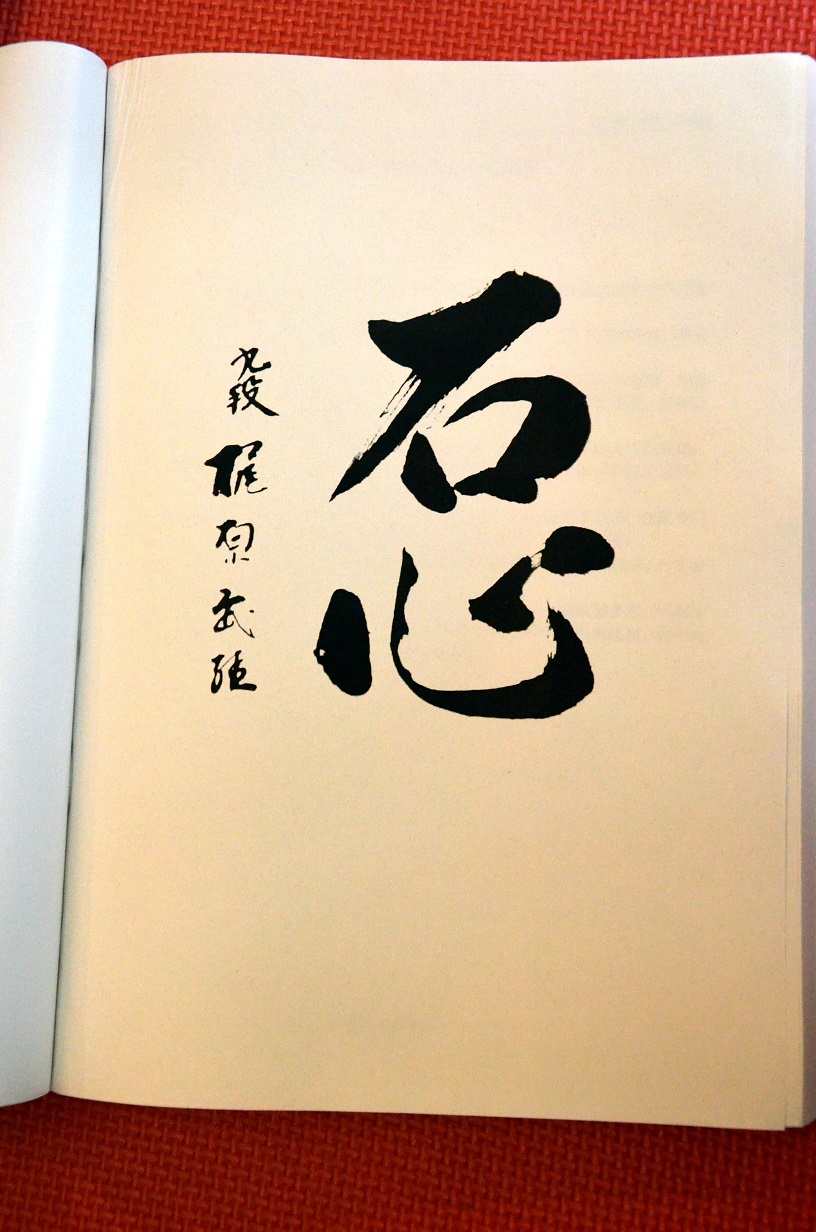 石心
九段 梶原武雄